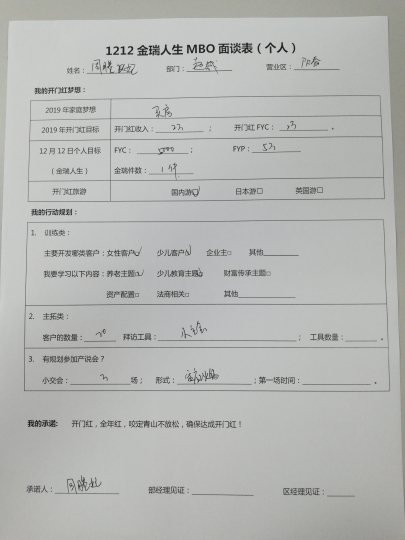 1212 金瑞人生 MBO 面谈表（个人）
姓名： 部门： 营业区：
我的开门红梦想：
2019 年家庭梦想 买房
2019 年开门红目标 开门红收入：2万 ； 开门红 FYC： 2万 。
12 月 12 日个人目标 FYC： 5000 ； FYP： 5万
（金瑞人生） 金瑞件数： 1件
开门红旅游 国内游☑ 日本游□ 英国游□
我的行动规划：
1. 训练类：
主要开发哪类客户：女性客户☑ 少儿客户☑ 企业主□ 其他
我要学习以下内容：养老主题☑ 少儿教育主题☑ 财富传承主题□
资产配置□ 法商相关□ 其他
2. 主拓类：
客户的数量： 20 拜访工具： ； 工具数量： 。
3. 有规划参加产说会？
小交会： 场； 形式： ；第一场时间： 。
我的承诺： 开门红，全年红，咬定青山不放松，确保达成开门红！
承诺人： 部经理见证： 区经理见证：